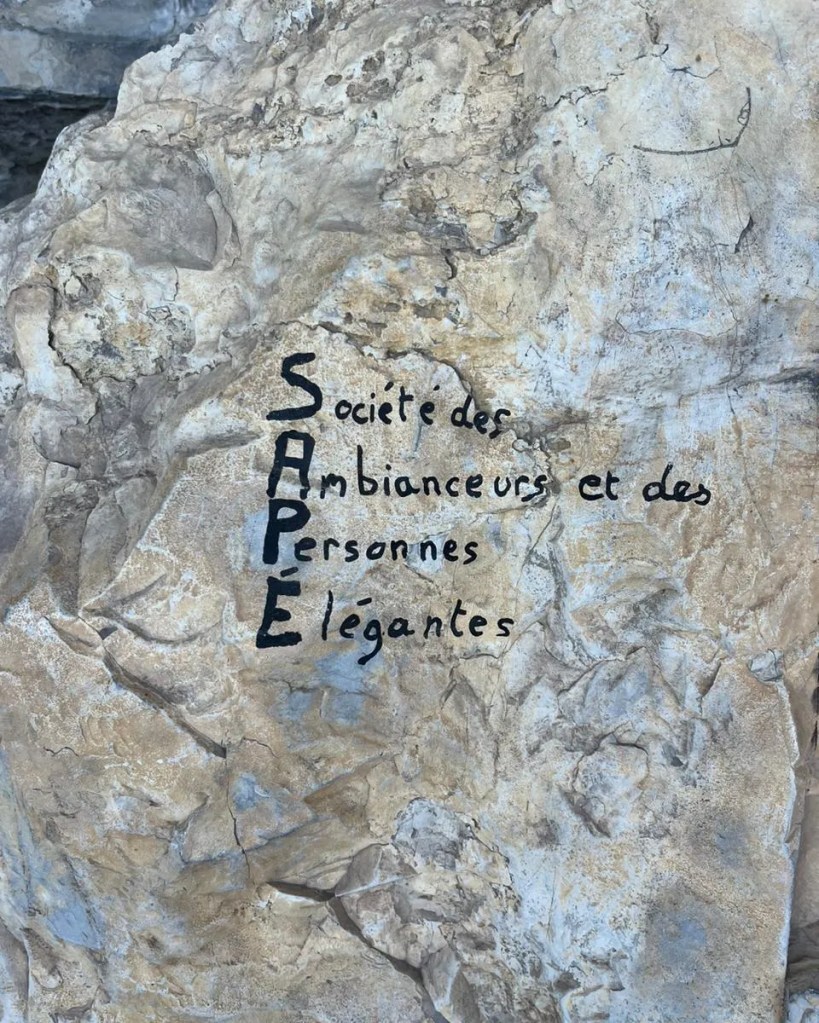 Société des
Ambianceurs et des
Personnes
Élégantes